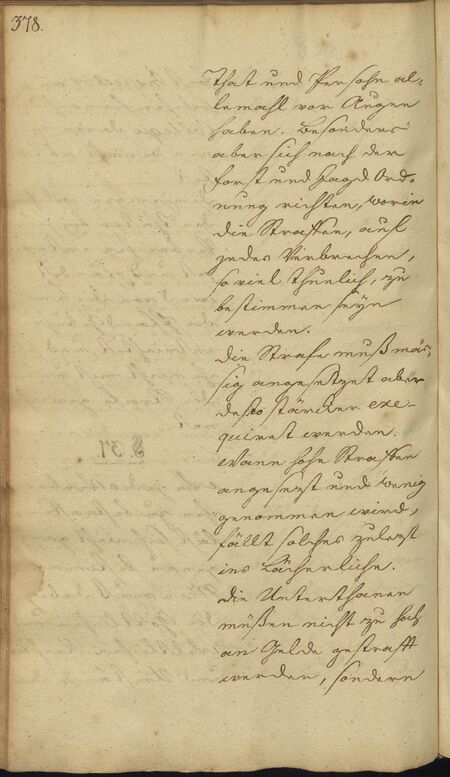 378.
That und Persohn al-
lemahl vor Augen
haben. Besonders
aber sich nach der
Forst und Jagd Ord-
nung richten, worin
die Straffen, auf
jedes Verbrechen,
so viel thunlich, zu
bestimmen seyn
werden.
Die Strafe muß mäs-
sig angesetzet aber
desto stärcker exe-
quiret werden.
Wann hohe Straffen
angesezt und wenig
genommen wird,
fällt solches zulezt
ins Lächerliche.
Die Unterthanen
müßen nicht zu hoch
an Gelde gestrafft
werden, sondern